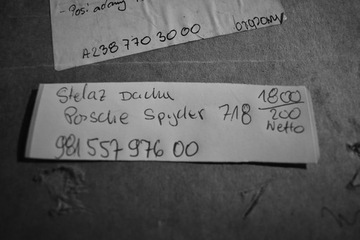 - Posiadamy
A238 770 30 00 brązowy
Stelaż Dachu
Porsche Spyder 718 1800
200
Netto
981 557 976 00